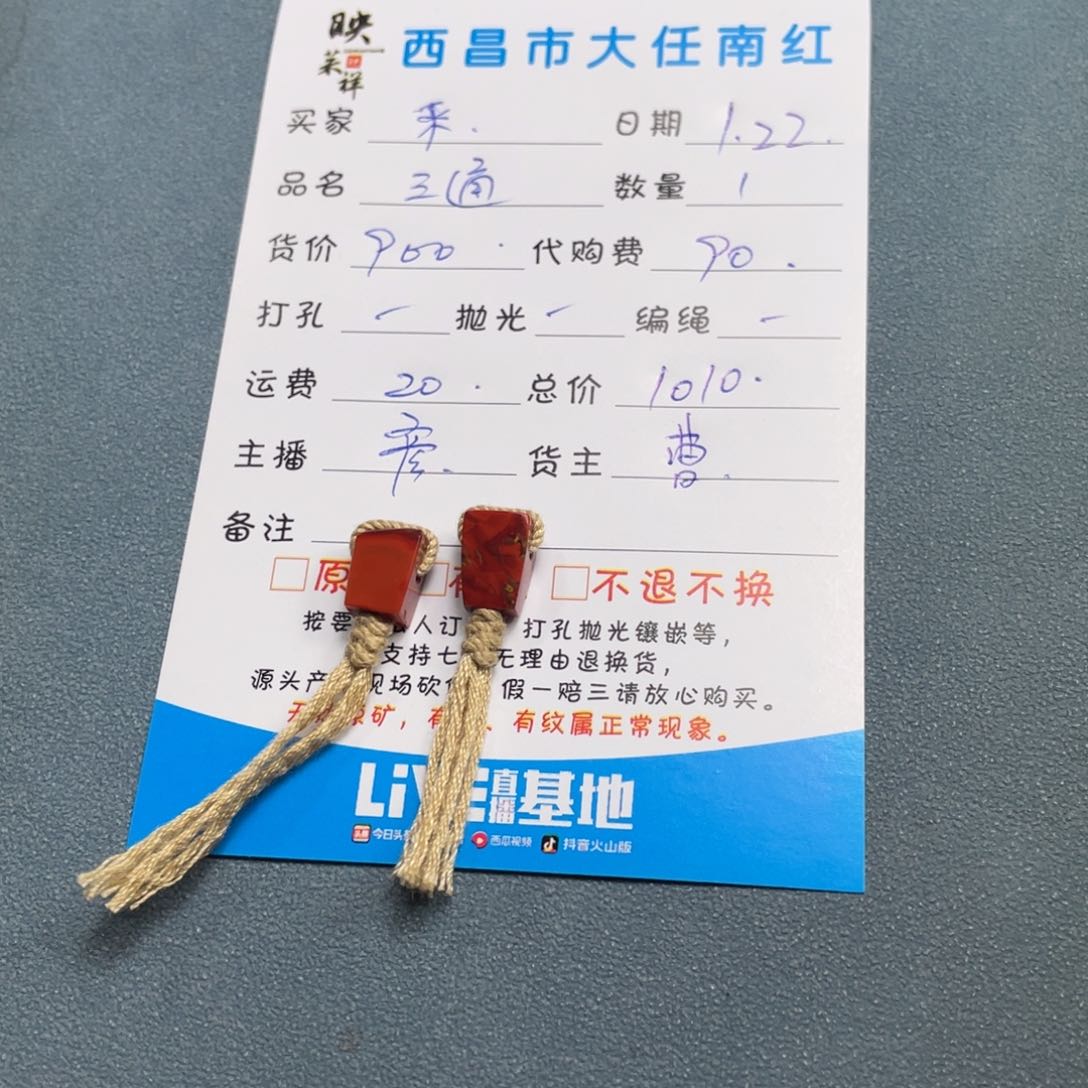 映
莱祥
西昌市大任南红
买家 来. 日期 1.22.
品名 三通 数量 1
货价 900. 代购费 90.
打孔 — 抛光 — 编绳 —
运费 20. 总价 1010.
主播 彦. 货主 曹.
备注
原 不退不换
按要 人订 打孔抛光镶嵌等，
支持七 无理由退换货，
源头产 现场砍 假一赔三请放心购买。
天 原矿，有 、有纹属正常现象。
LiVE直播基地
头条 今日头条 西瓜视频 抖音火山版